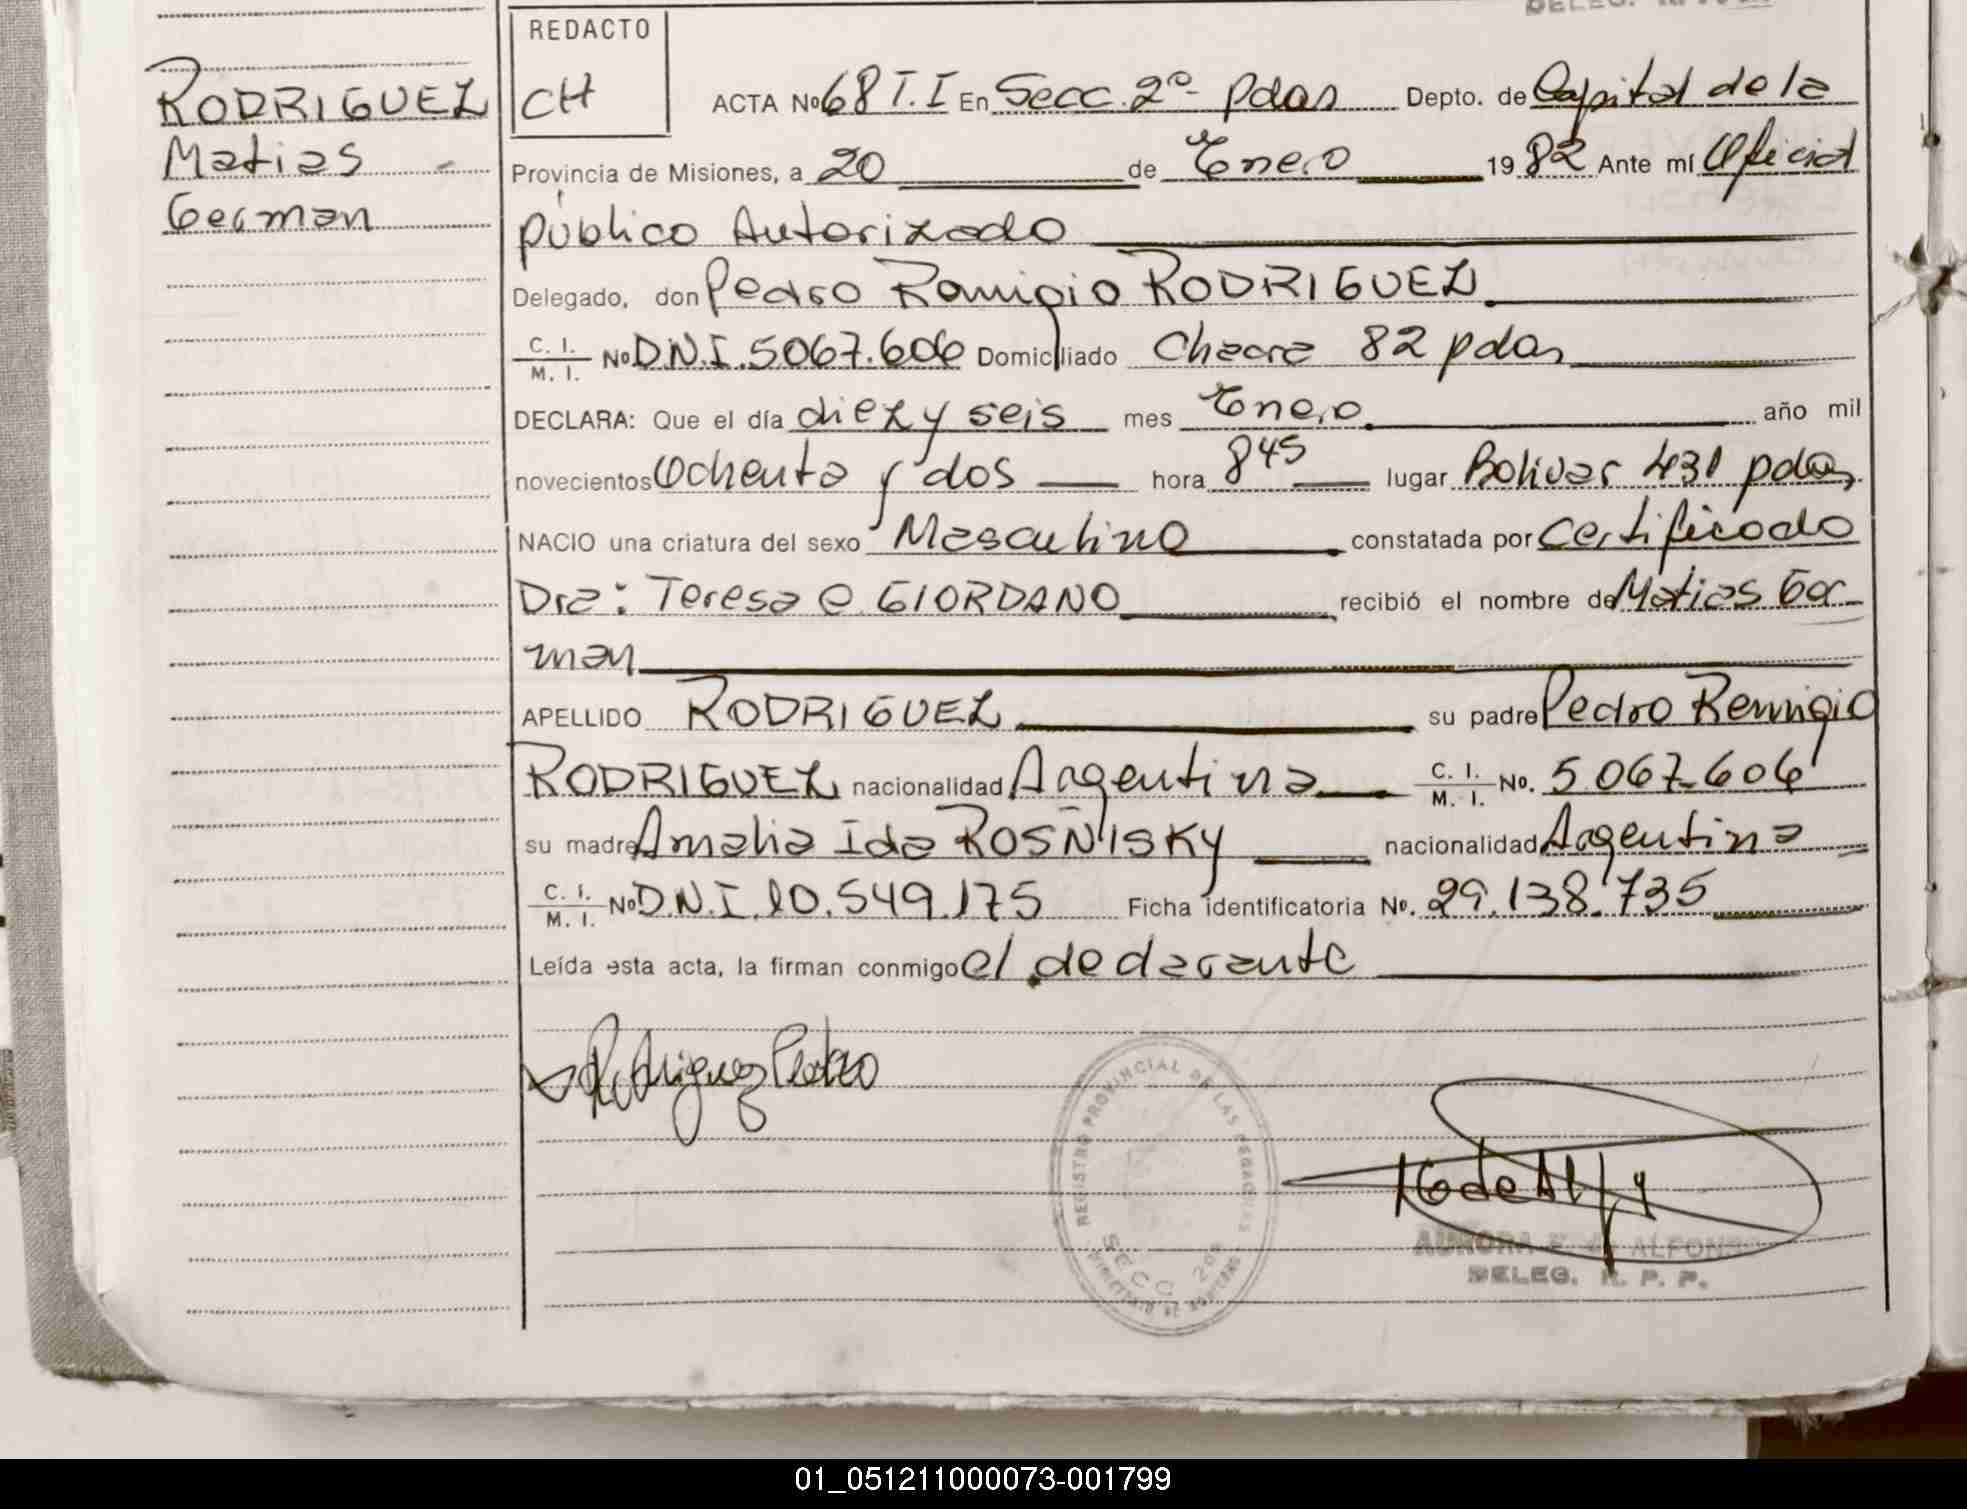 DELEG.
REDACTO
CH
RODRIGUEZ
Matias
German
ACTA Nº 68 T.I En Secc. 2º- Pdas Depto. de Capital de la
Provincia de Misiones, a 20 de Enero 1982 Ante mí Oficial
público Autorizado
Delegado, don Pedro Remigio RODRIGUEZ
C. I. / M. I. Nº D.N.I. 5.067.606 Domiciliado Chacra 82 pdas
DECLARA: Que el día diez y seis mes Enero año mil
novecientos Ochenta y dos hora 8 45 lugar Bolivar 431 pdas
NACIO una criatura del sexo Masculino constatada por Certificado
Dra: Teresa e GIORDANO recibió el nombre de Matias Ger
man
APELLIDO RODRIGUEZ su padre Pedro Remigio
RODRIGUEZ nacionalidad Argentina C. I. / M. I. No. 5.067.606
su madre Amalia Ida ROSÑISKY nacionalidad Argentina
C. I. / M. I. Nº D.N.I. 10.549.175 Ficha identificatoria No. 29.138.735
Leída esta acta, la firman conmigo el declarante
Rodriguez Pedro
REGISTRO PROVINCIAL DE LAS PERSONAS
SECC 2da
AURORA ALFONSO
DELEG. R. P. P.
01_051211000073-001799